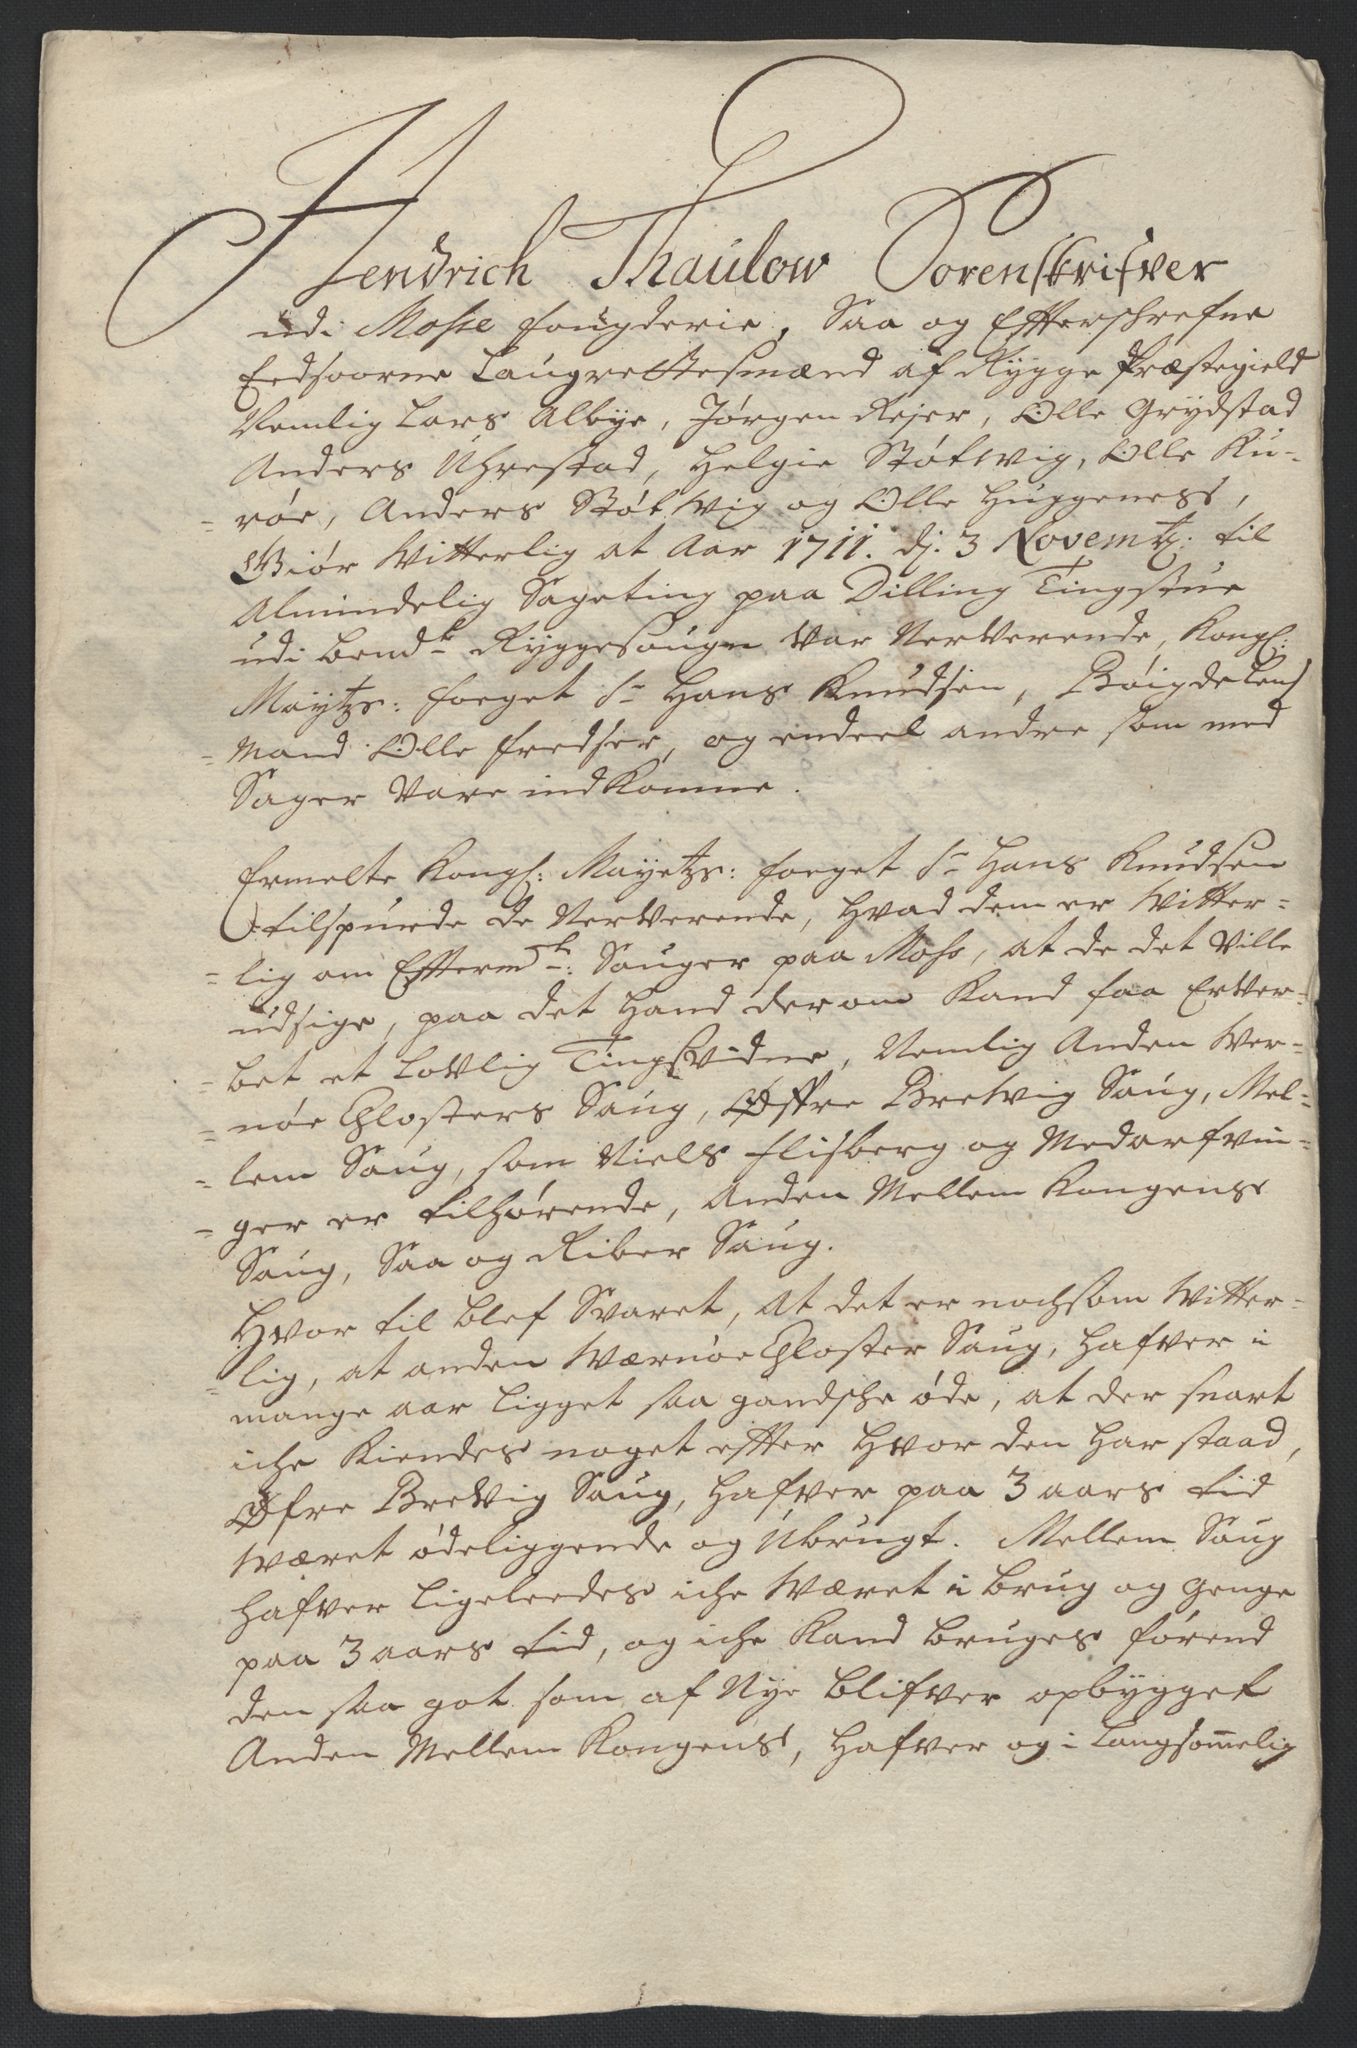 Hendrich Thaulow Sorenskrifver
udi Mosse fougderie, Saa og Effterschrefne
Eedsoorne Laugrettesmænd af Rygge Præstegield
Nemlig Lars Albye, Jørgen Rejer, Olle Grydstad
Anders Uhrestad, Helgie Støtwig, Olle Ku-
-røe, Anders Støtwig og Olle Huggeness,
Giør Witterlig at Aar 1711. dj. 3 Novembr: til
Almindelig Sageting paa Dilling Tingstue
udi bemdte Ryggesougn var Nerverende, Kongl:
Maytzs: foeget Sr Hans Knudsen, Bøigdelens
-Mand Olle fredser, og endeel andre som med
Sager vare indkomne.
Ermelte Kongl: Mayetzs: foeget Sr Hans Knudsen
tilspurde de Nerverende, hvad dem er Witter-
-lig om Effterm.te: Sauger paa Moss, at de det ville
udsige, paa det hand derom kand faa Erver-
-bet et Lovlig Tingsvidne, Nemlig Anden Wer-
-nøe Closters Saug, Øffre Brevig Saug, Mel-
-lem Saug, som Niels Elisberg og Medarfvin-
-ger er tilhørende, Anden Mellem Kongens
Saug, Saa og Riber Saug.
Hvor til blef Svaret, at det er nochsom Witter-
-lig, at anden Wærnøe Closter Saug, hafver i
mange aar ligget saa gandsche øde, at der snart
iche kiendes noget effter hvor den har staad,
Øfre Brevig Saug, hafver paa 3 aars tid
Wæret ødeliggende og Ubrugt. Mellem Saug
hafver ligeleedes iche Wæret i brug og genge
paa 3 aars tid, og iche kand bruges førend
den saa got som af Nye blifver opbygget
Anden Mellem Kongens, hafver og i Langsommelig